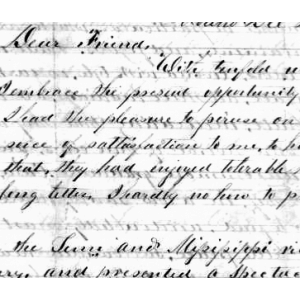 Dear Friend,
With tenfold
I embrace the present oppertunity
I had the pleasure to peruse on
of sattasfaction to me, to
that, they had enjoyed tolerable
long letter, I hardly no how to p
the and Misisippi
and presented a Spectac